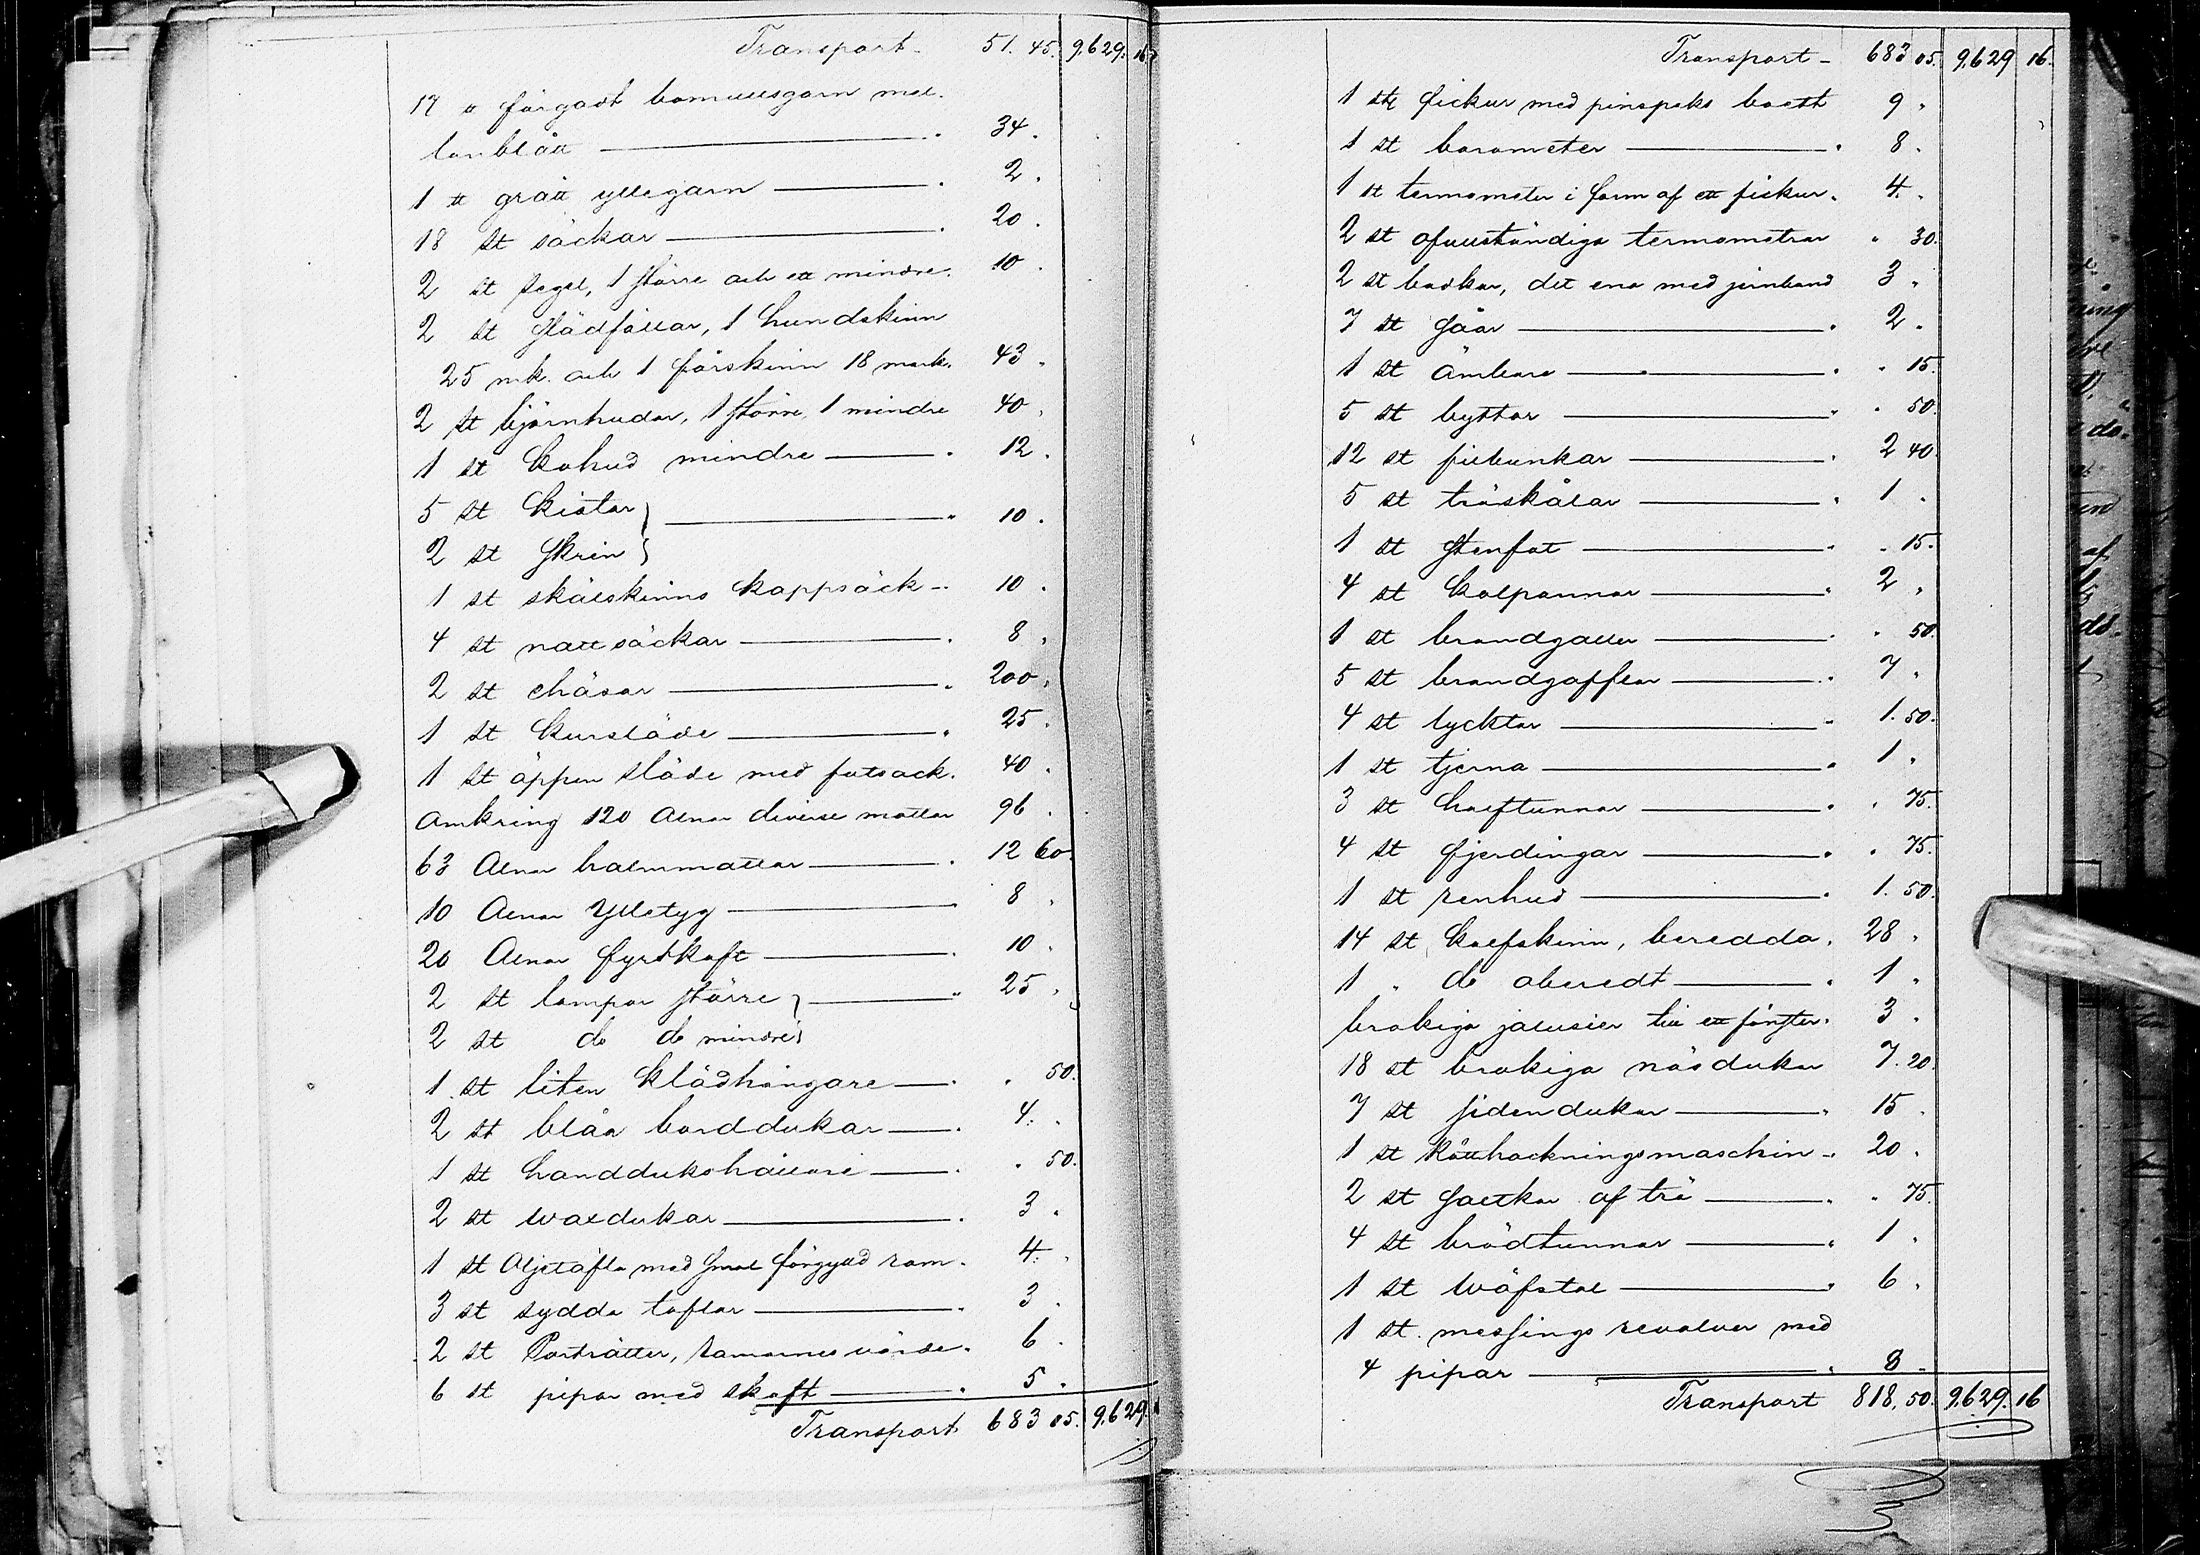 Transport. 51. 45. 9,629. 16
17 ℔ färgadt bomullsgarn mel.
lanblått " 34.
1 ℔ grått yllegarn " 2.
18 st säckar " 20.
2 st segel, 1 större och ett mindre. 10.
2 st slädfällar, 1 hundskinn
25 mk. och 1 fårskinn 18 mark. 43.
2 st björnhudar, 1 större, 1 mindre 40.
1 st kohud mindre " 12.
5 st kistor } " 10.
2 st skrin }
1 st skälskinns kappsäck " 10.
4 st nattsäckar " 8.
2 st chäsar " 200.
1 st kursläde " 25.
1 st öppen släde med fotsack. 40.
Omkring 120 alnar diverse mattor 96.
63 Alnar halmmattor " 12 60.
10 Alnar Ylletyg " 8.
20 Alnar fyrskaft " 10.
2 st lampor större } " 25.
2 st do do mindre }
1 st liten klädhängare " " 50.
2 st blåa borddukar " 4.
1 st handdukshållare " " 50.
2 st vaxdukar " 3.
1 st Oljetafla med smal förgylld ram. 4.
3 st sydda taflor " 3.
2 st Porträtter, ramarnes värde. 6.
6 st pipor med skaft " 5.
Transport 683 05. 9,629.
Transport 683 05. 9,629 16.
1 st fickur med pinspeks boett 9.
1 st barometer " 8.
1 st termometer i form af ett fickur. 4.
2 st ofullständiga termometrar " 30.
2 st badkar, det ena med jernband 3.
7 st såar " 2.
1 st ämbare " " 15.
5 st byttor " " 50.
12 st filbunkar " 2 40.
5 st träskålar " 1.
1 st stenfat " " 15.
4 st kolpannor " 2.
1 st brandgaller " " 50.
5 st brandgafflar " 7.
4 st lycktor " 1. 50.
1 st tjerna " 1.
3 st halftunnor " " 75.
4 st fjerdingar " " 75.
1 st renhud " 1. 50.
14 st kalfskinn, beredda. 28.
1 " do oberedt " 1.
brokiga jalusier till ett fönster. 3.
18 st brokiga näsdukar 7. 20.
7 st sidendukar " 15.
1 st kötthackningsmaschin " 20.
2 st saltkar af trä " " 75.
4 st brödtunnor " 1.
1 st wäfstol " 6.
1 st. messings revolver med
4 pipor " 8.
Transport 818. 50. 9,629. 16